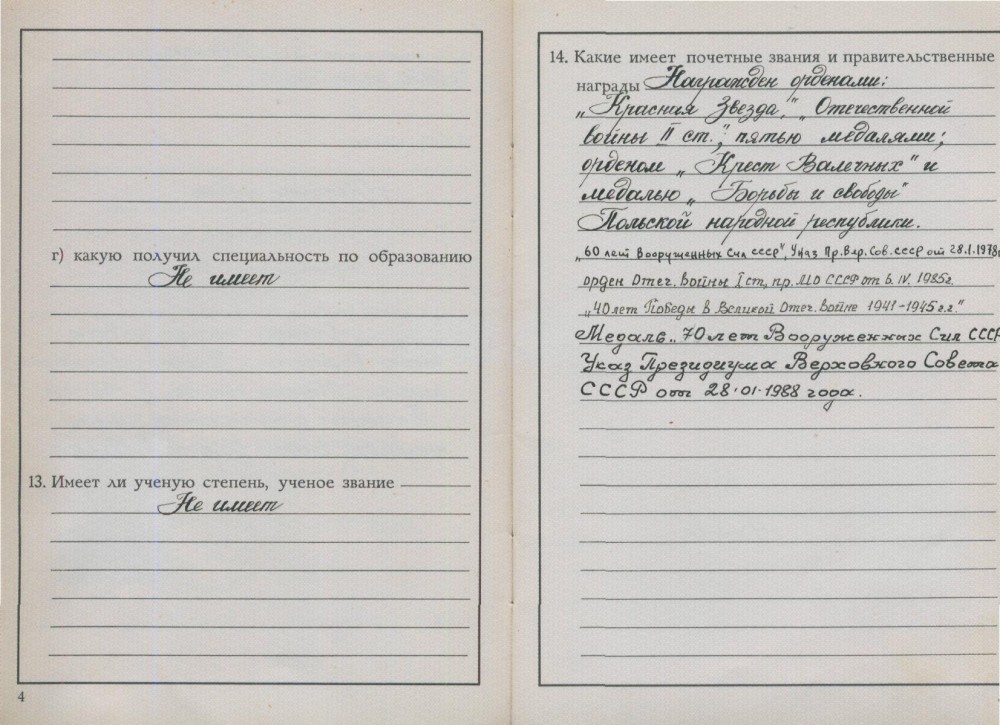 г) какую получил специальность по образованию
Не имеет
13. Имеет ли ученую степень, ученое звание
Не имеет
4
14. Какие имеет почетные звания и правительственные
награды Награжден орденами:
„Красная Звезда," „Отечественной
войны II ст.", пятью медалями;
орденом „Крест Валечных" и
медалью „Борьбы и свободы"
Польской народной республики.
„60 лет Вооруженных Сил СССР", Указ Пр. Вер. Сов. СССР от 28.1.1978г
орден Отеч. Войны I ст., пр. МО СССР от 6. IV. 1985г.
„40 лет Победы в Великой Отеч. Войне 1941-1945 г.г."
Медаль „70 лет Вооруженных Сил СССР
Указ Президиума Верховного Совета
СССР от 28.01.1988 года.